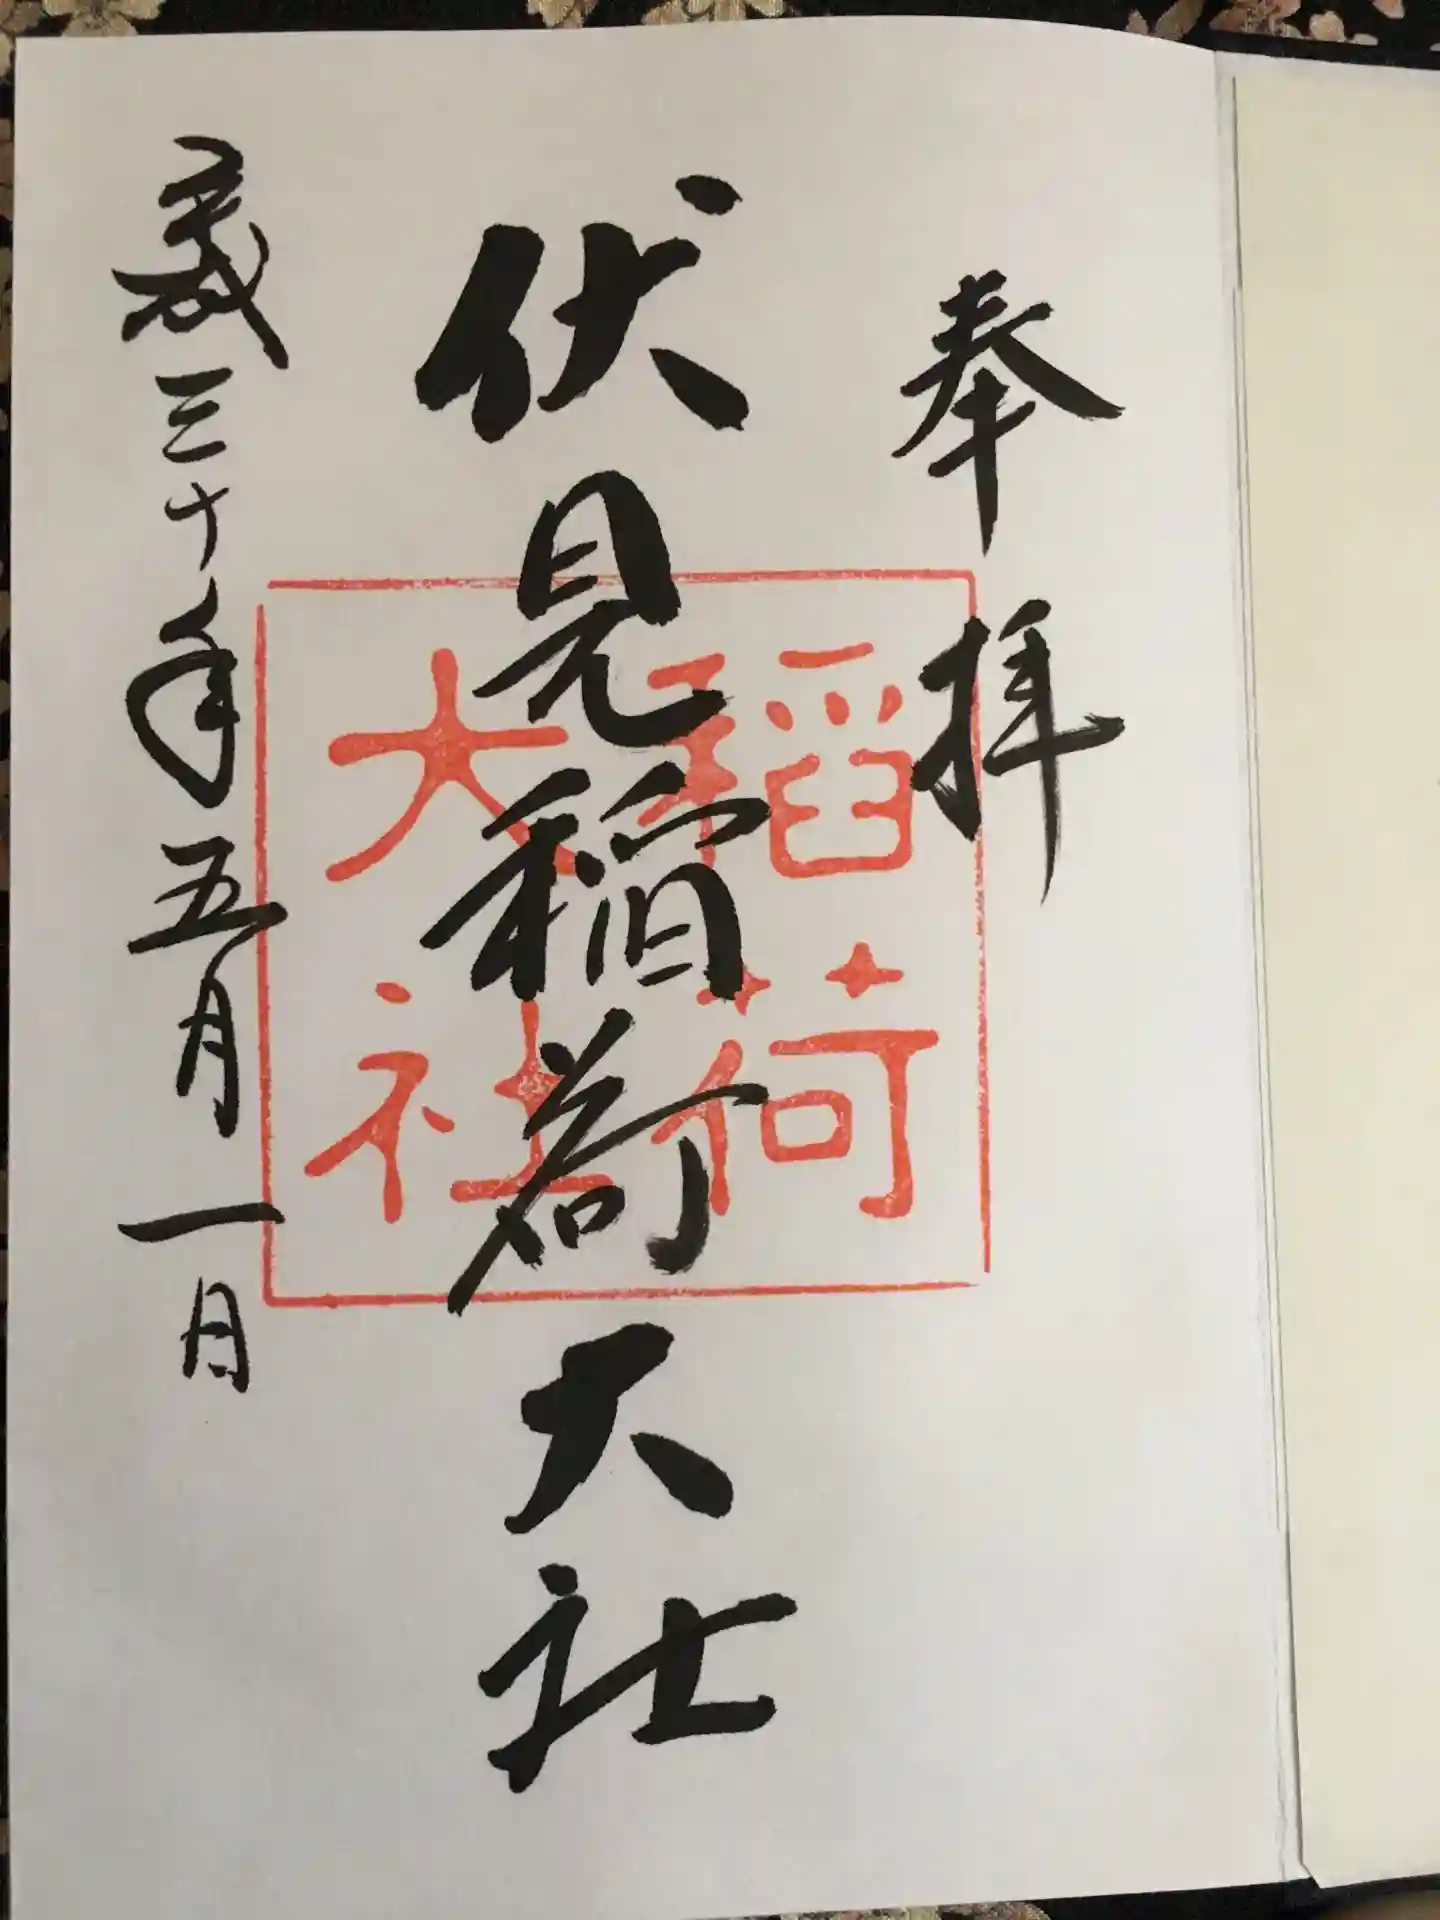 奉拝
伏見稲荷大社
平成三十年五月一日
稲荷
大社